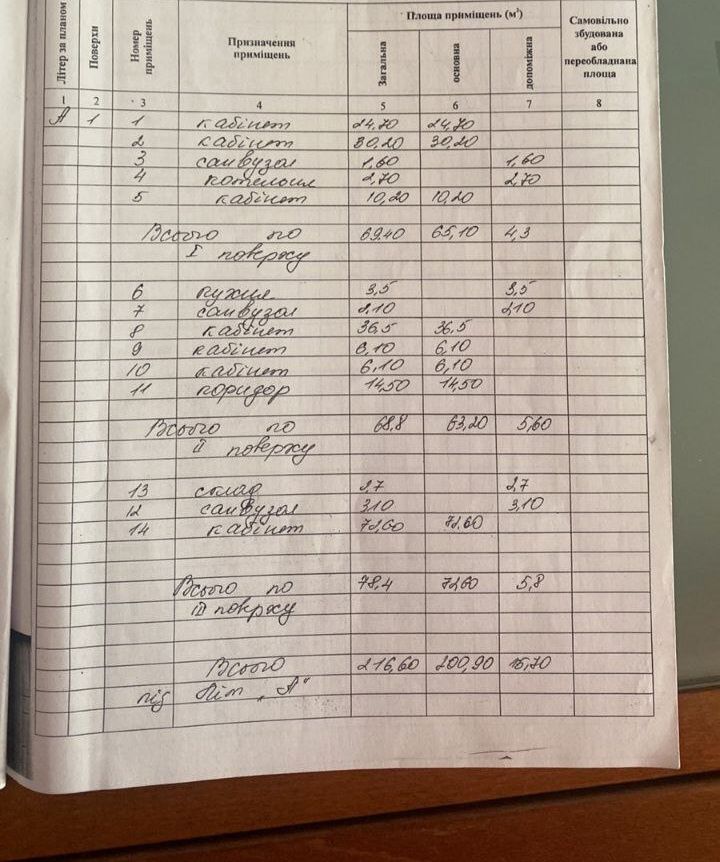 Літер за планом | Поверхи | Номер приміщень | Призначення приміщень | Площа приміщень (м²) | Самовільно збудована або переобладнана площа
Загальна | основна | допоміжна
1 | 2 | 3 | 4 | 5 | 6 | 7 | 8
А | 1 | 1 | кабінет | 24,70 | 24,70
2 | кабінет | 30,20 | 30,20
3 | санвузол | 1,60 | 1,60
4 | котельня | 2,70 | 2,70
5 | кабінет | 10,20 | 10,20
Всього по | 69.40 | 65,10 | 4,3
I поверху
6 | кухня | 3,5 | 3,5
7 | санвузол | 2,10 | 2,10
8 | кабінет | 36,5 | 36,5
9 | кабінет | 6,10 | 6,10
10 | кабінет | 6,10 | 6,10
11 | коридор | 14,50 | 14,50
Всього по | 68,8 | 63,20 | 5,60
II поверху
13 | склад | 2,7 | 2,7
12 | санвузол | 3,10 | 3,10
14 | кабінет | 72,60 | 72.60
Всього по | 78,4 | 72,60 | 5,8
III поверху
Всього | 216,60 | 200,90 | 15,70
під Літ „А"